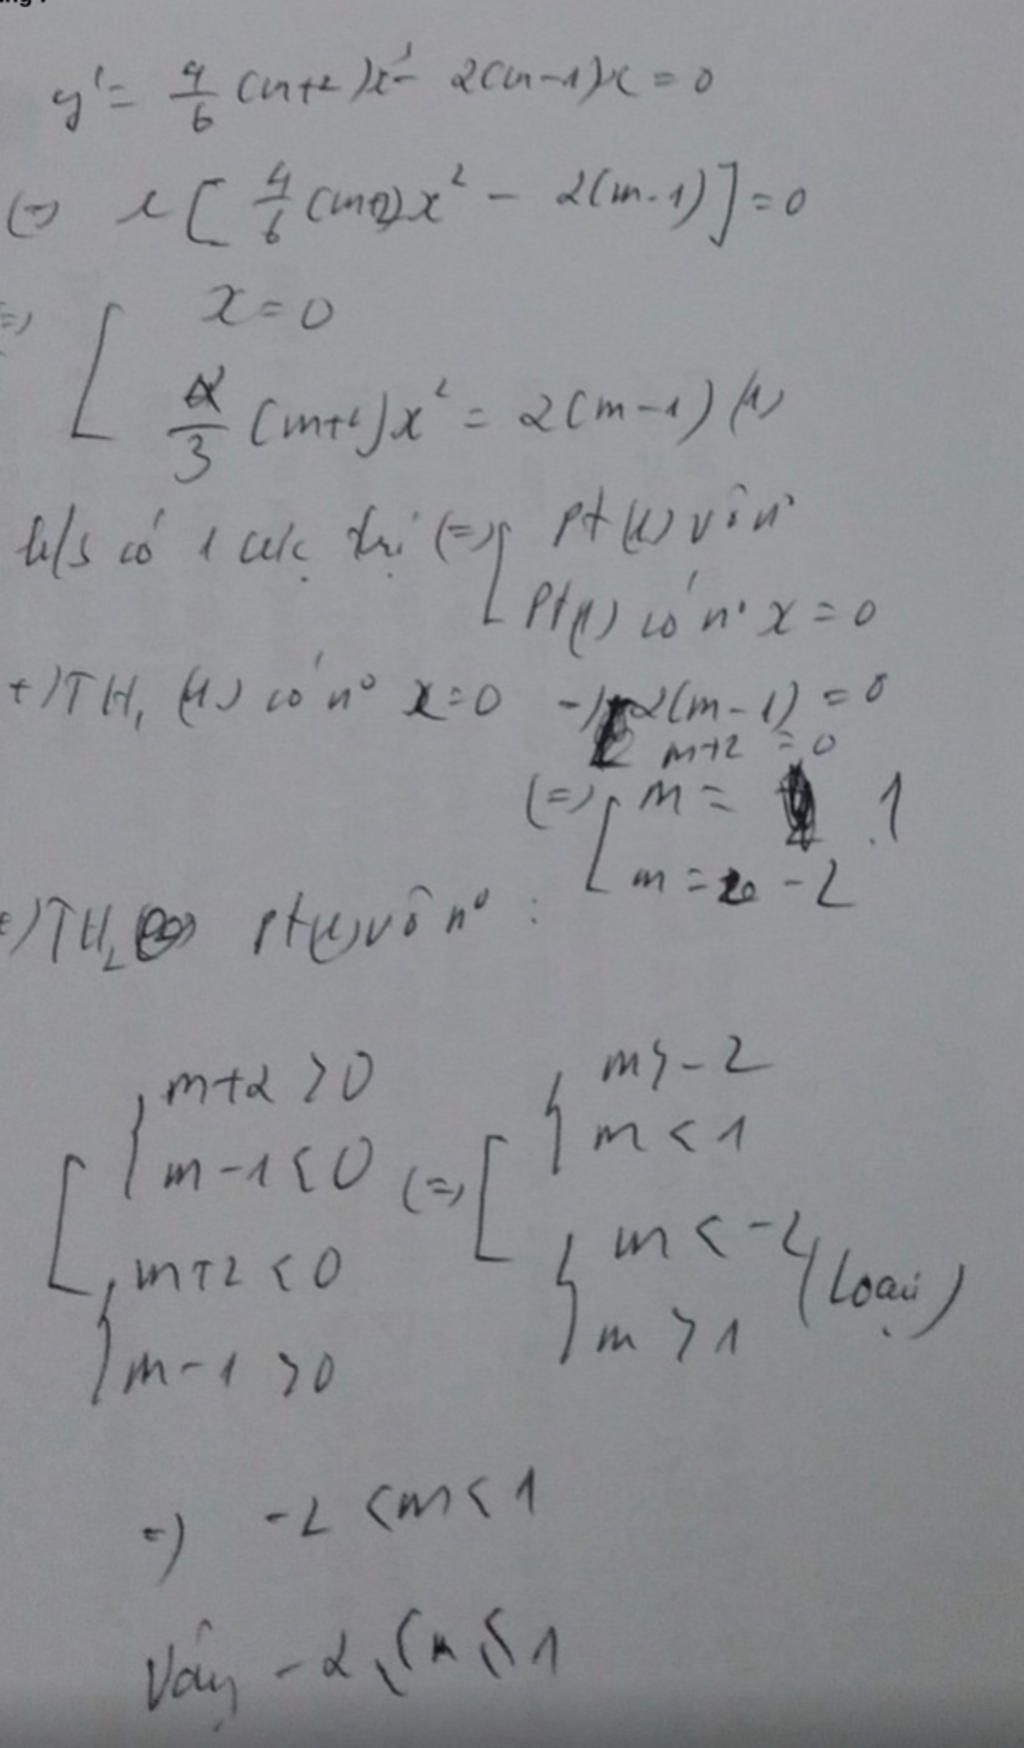 y' = 4/6 (m+2)x³ - 2(m-1)x = 0
(=) x [ 4/6 (m+2)x² - 2(m-1) ] = 0
(=) [ x = 0
2/3 (m+2)x² = 2(m-1) (1)
h/s có 1 cực trị (=) [ pt (1) vô n°
pt(1) có n° x = 0
+) TH₁ (1) có n° x = 0 -) 2(m-1) = 0
m+2 = 0
(=) [ m = 1
m = -2
+) TH₂ pt(1) vô n° :
[ { m+2 > 0
m-1 < 0
{ m+2 < 0
m-1 > 0
(=) [ { m > -2
m < 1
{ m < -2
m > 1 (loại)
=) -2 < m < 1
Vậy -2 ≤ m ≤ 1